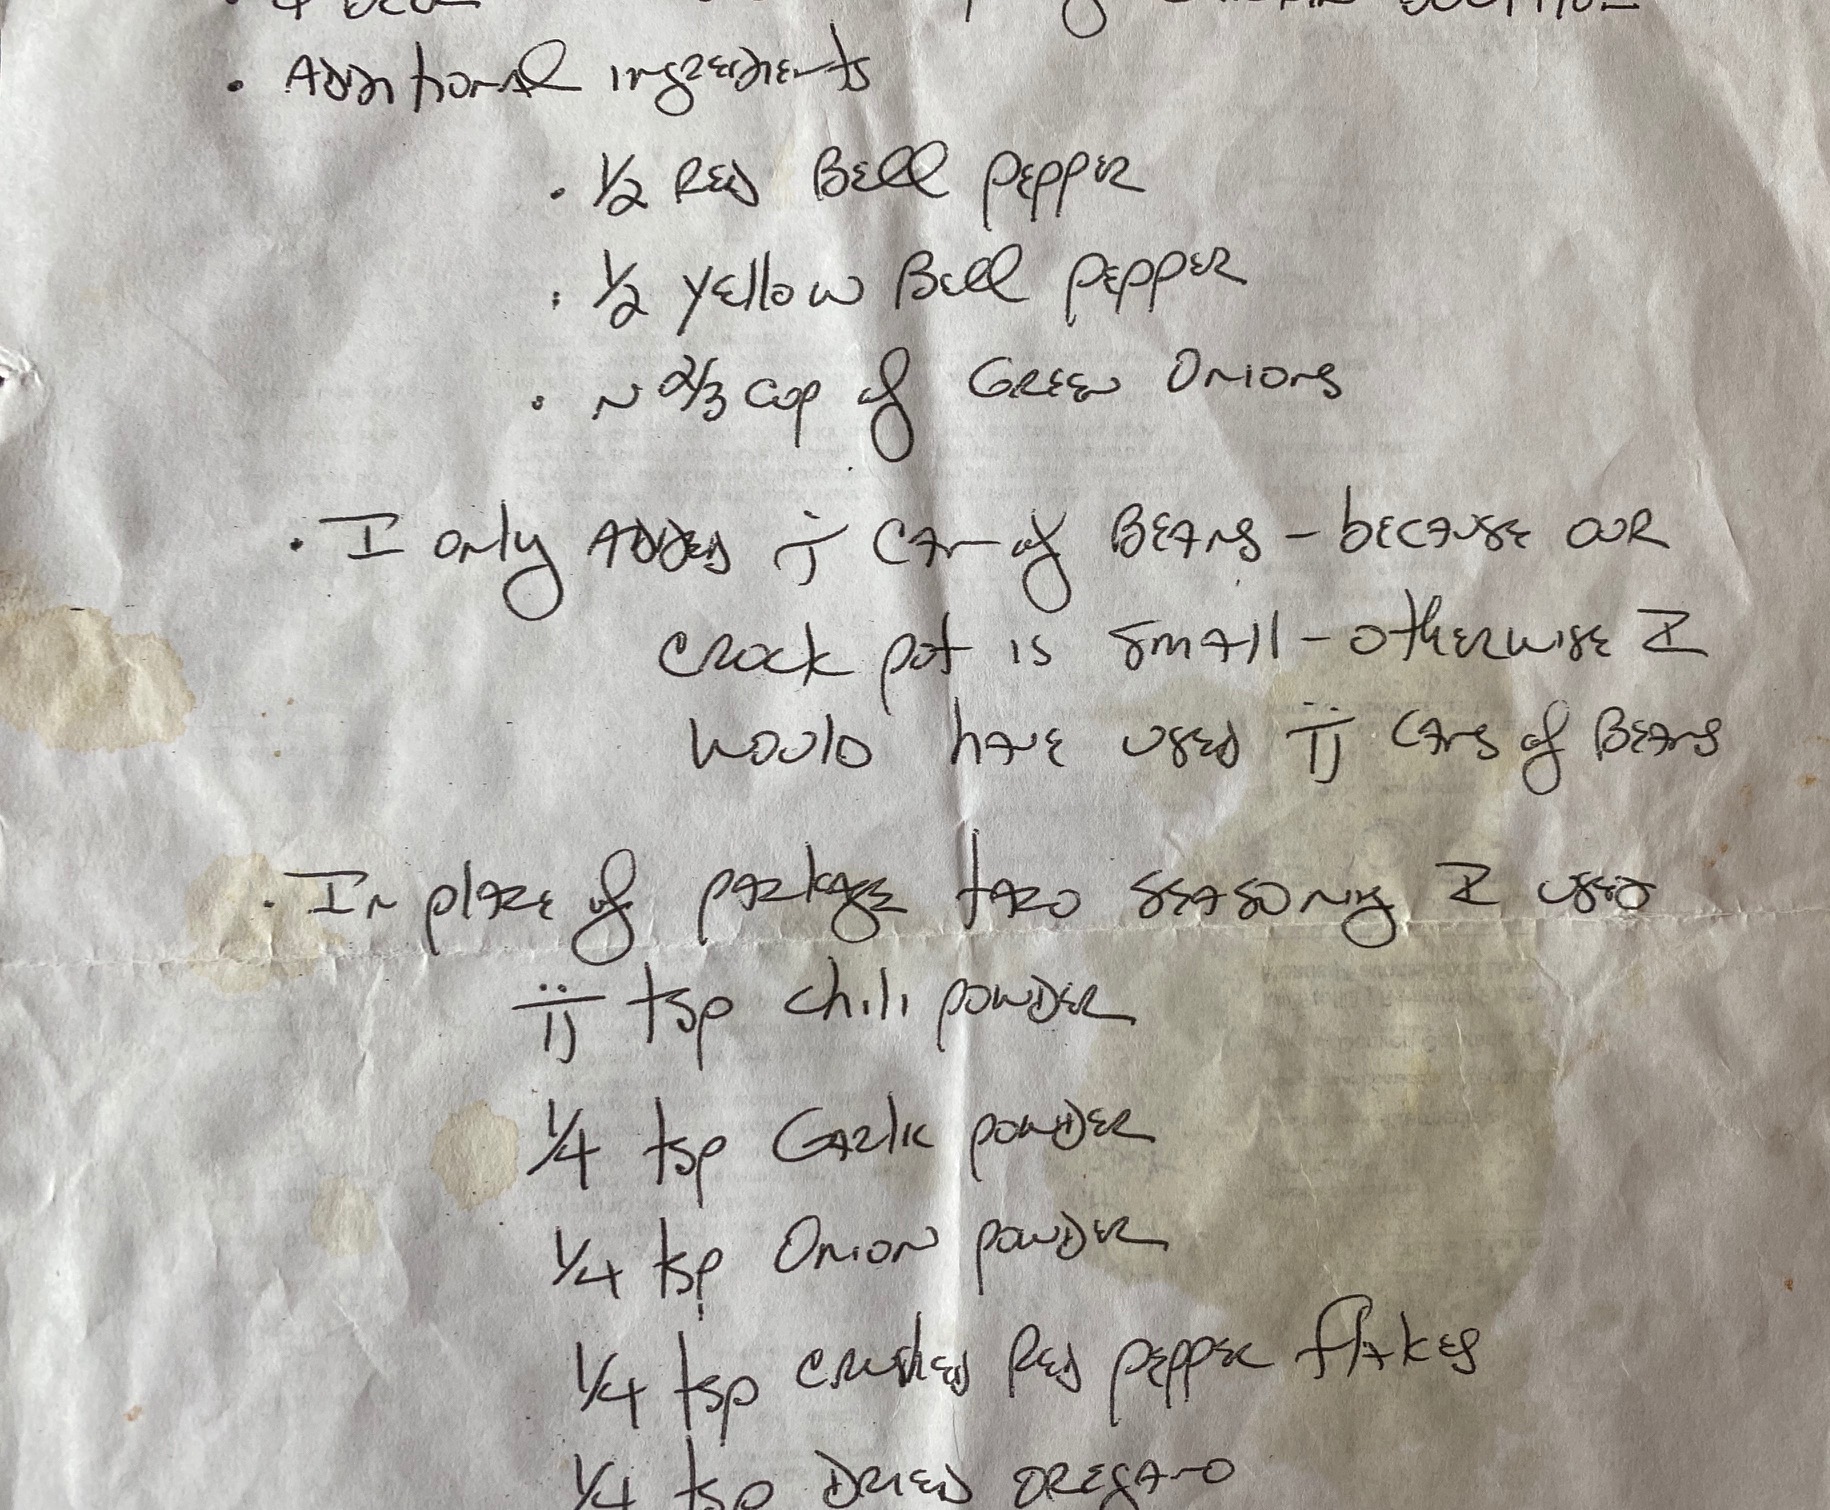 • Additional ingredients
• 1/2 Red Bell pepper
• 1/2 yellow Bell pepper
• ~ 2/3 cup of Green Onions
• I only ADDED i CAN of BEANS - because our
crock pot is small - otherwise I
would have used ii CANS of BEANS
• In place of package taco seasoning I used
ii tsp chili powder
1/4 tsp Garlic powder
1/4 tsp Onion powder
1/4 tsp crushed Red pepper flakes
1/4 tsp DRIED OREGANO